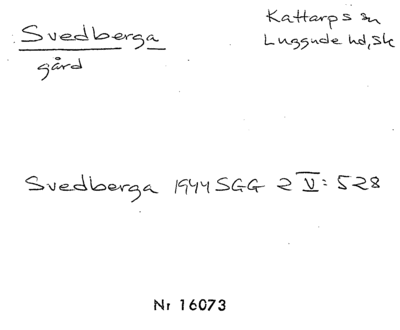 Svedberga
gård
Kattarps sn
Luggude hd, Sk
Svedberga 1944 SGG 2 V: 528
Nr 16073